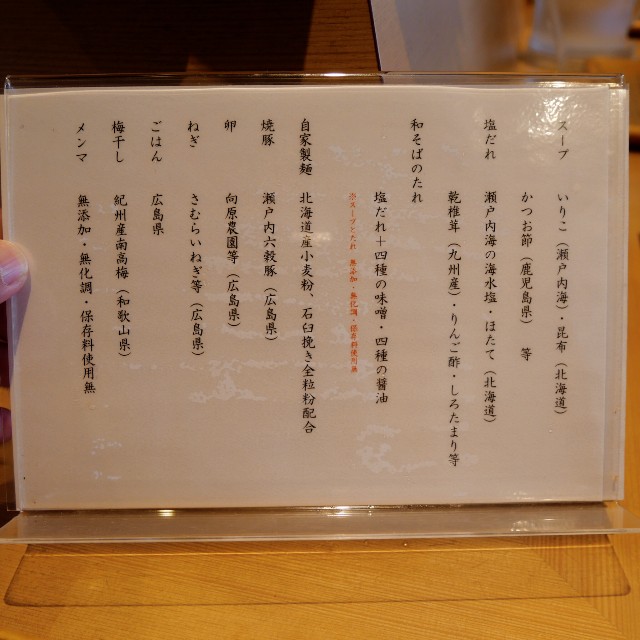 スープ　いりこ（瀬戸内海）・昆布（北海道）
かつお節（鹿児島県）　等
塩だれ　瀬戸内海の海水塩・ほたて（北海道）
乾椎茸（九州産）・りんご酢・しろたまり等
和そばのたれ
塩だれ＋四種の味噌・四種の醤油
※スープとたれ　無添加・無化調・保存料使用無
自家製麺　北海道産小麦粉、石臼挽き全粒粉配合
焼豚　瀬戸内六穀豚（広島県）
卵　向原農園等（広島県）
ねぎ　さむらいねぎ等（広島県）
ごはん　広島県
梅干し　紀州産南高梅（和歌山県）
メンマ　無添加・無化調・保存料使用無